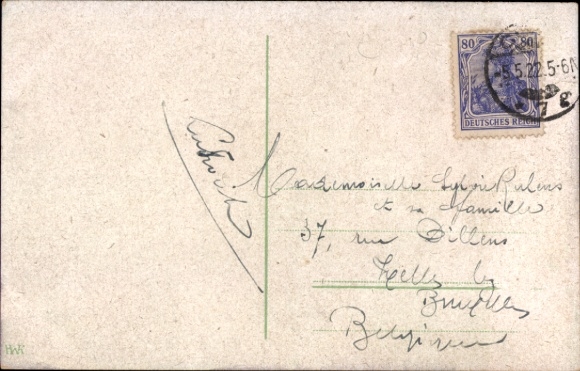 80 80
-5.5.22.5-6N
1 g
DEUTSCHES REICH
Mademoiselle Sylvie Rubens
et sa famille
37, rue Dillens
Xelles lez
Bruxelles
Belgique